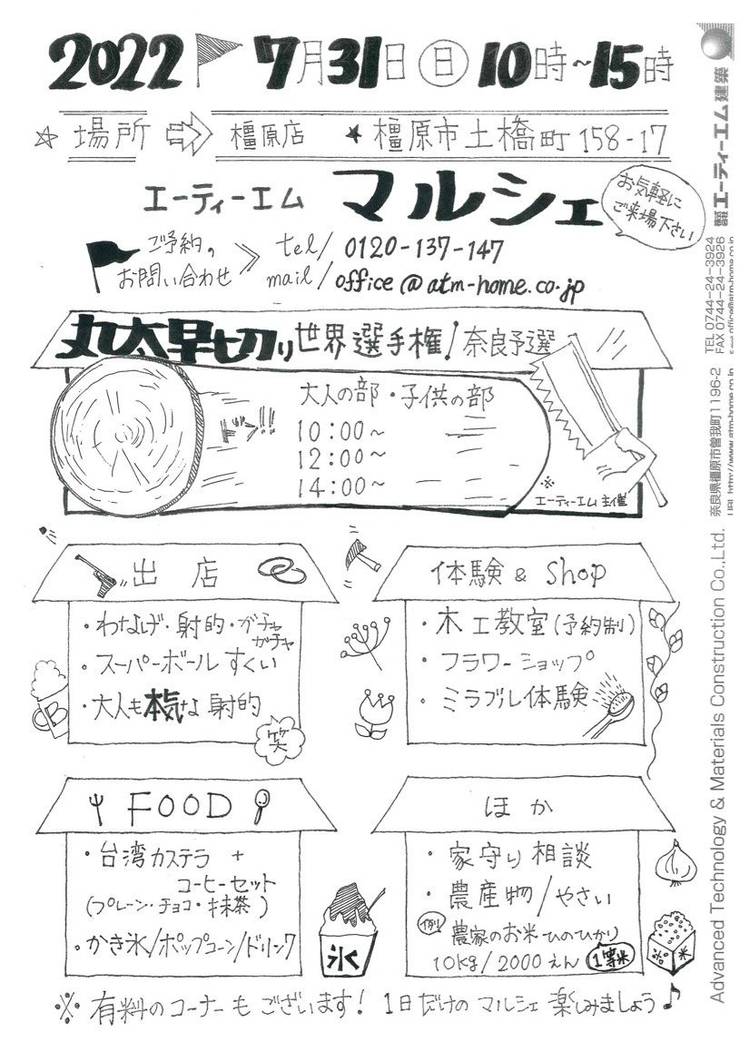 2022 7月31日(日)10時~15時
☆場所 ⇨ 橿原店 ★橿原市土橋町158-17
エーティーエム マルシェ
お気軽に
ご来場下さい
ご予約の
お問い合わせ
tel/ 0120-137-147
mail/ office@atm-home.co.jp
丸太早切り世界選手権!奈良予選
大人の部・子供の部
ドン!!
10:00~
12:00~
14:00~
※エーティーエム主催
出店
・わなげ・射的・ガチャガチャ
・スーパーボールすくい
・大人も本気な射的
笑
体験 & Shop
・木工教室(予約制)
・フラワーショップ
・ミラブル体験
FOOD
・台湾カステラ +
コーヒーセット
(プレーン・チョコ・抹茶)
・かき氷/ポップコーン/ドリンク
氷
ほか
・家守り相談
・農産物/やさい
例 農家のお米ひのひかり
10kg/2000えん 1等米
米
※有料のコーナーもございます!1日だけのマルシェ楽しみましょう♪
エーティーエム建築
TEL 0744-24-3924
FAX 0744-24-3926
奈良県橿原市曽我町1196-2
Advanced Technology & Materials Construction Co.,Ltd.